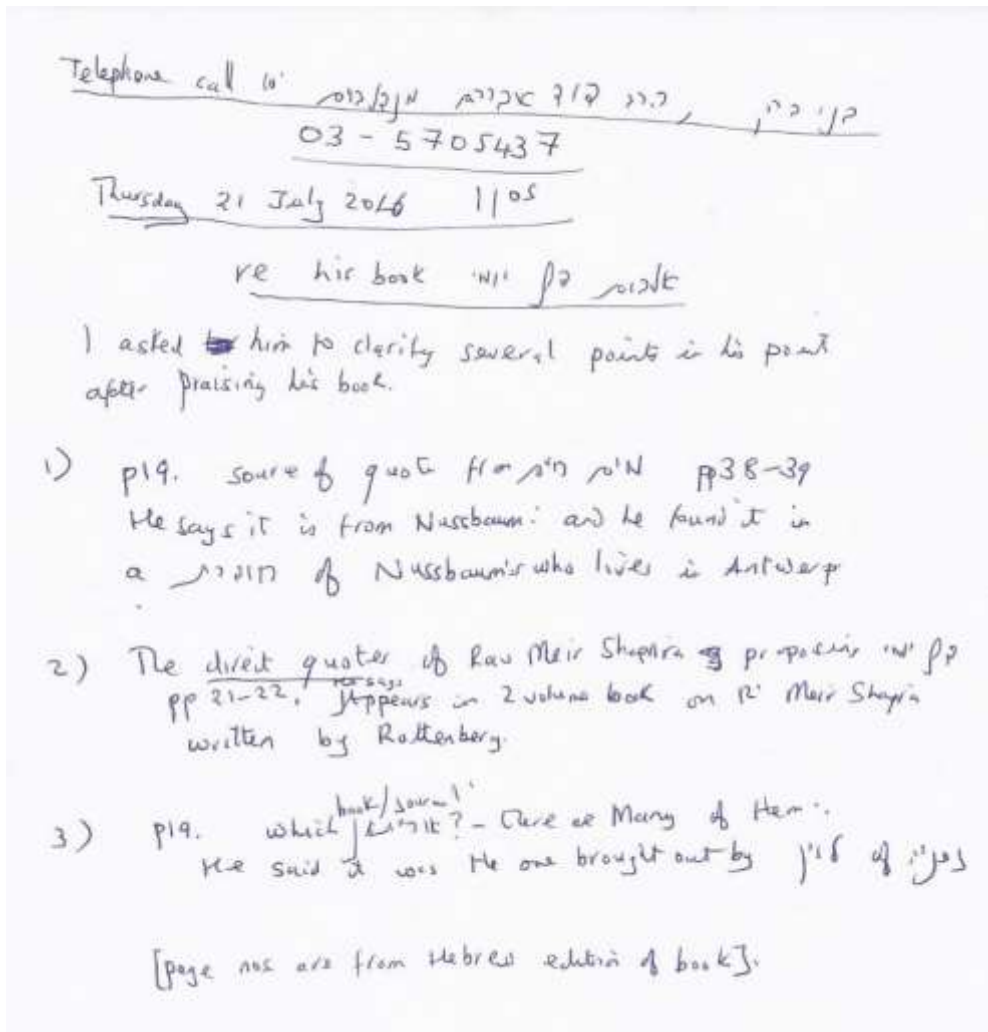 Telephone call to הרב דוד אברהם מנדלבוים, בני ברק
03-5705437
Thursday 21 July 2016 1105
re his book דף יומי
I asked him to clarify several points in his point
after praising his book.
1) p19. source of quote from pp38-39
He says it is from Nussbaum: and he found it in
a חוברת of Nussbaum's who lives in Antwerp
2) The direct quotes of Rav Meir Shapira proposing דף יומי
pp 21-22. He says Appears in 2 volume book on R' Meir Shapira
written by Rottenberg.
3) p19. which book/journal ? - there are Many of them.
He said it was the one brought out by of לובלין
[page nos are from Hebrew edition of book].